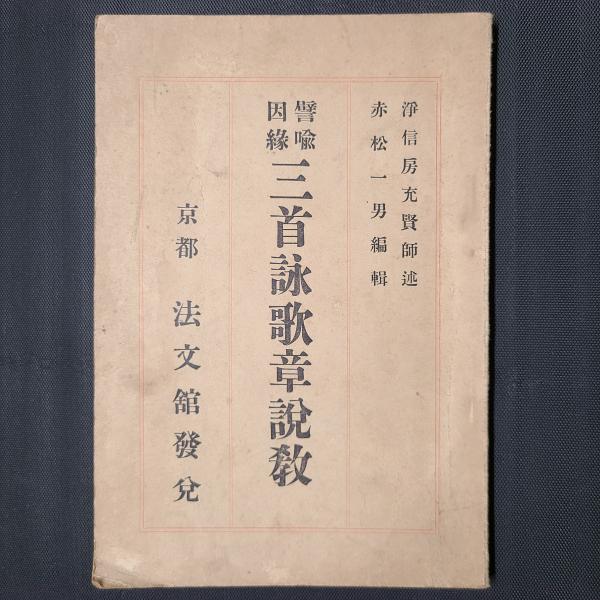 淨信房充賢師述
赤松一男編輯
譬喩
因緣
三首詠歌章說敎
京都 法文舘發兌